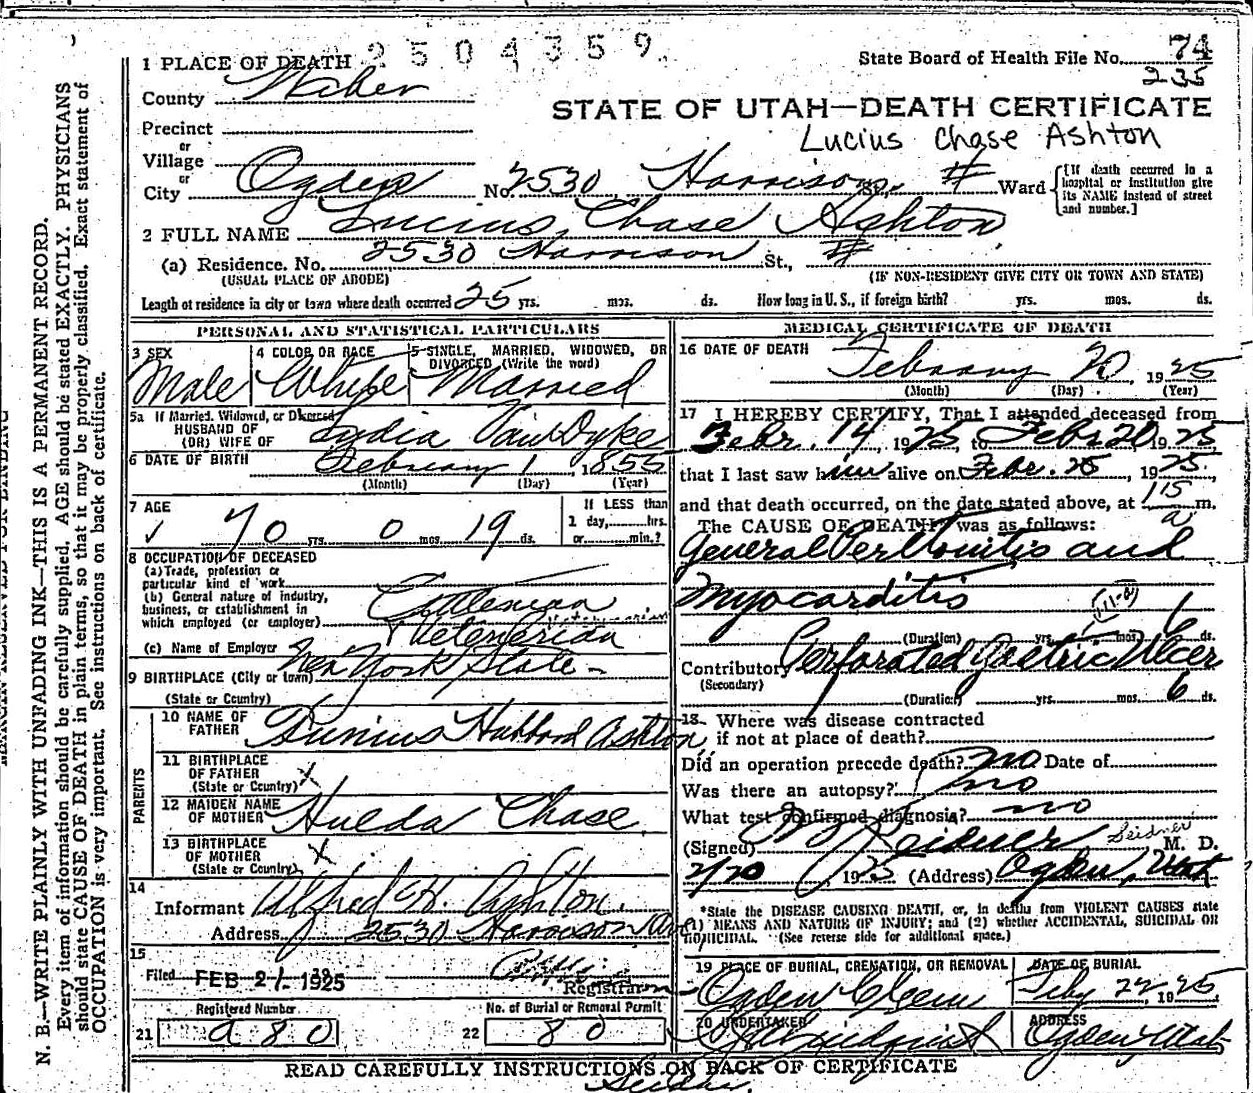 2504359
State Board of Health File No. 74
235
1 PLACE OF DEATH
County Weber
STATE OF UTAH—DEATH CERTIFICATE
Precinct
Lucius Chase Ashton
or
Village
or
City Ogden No. 2530 Harrison St. Ward
[If death occurred in a hospital or institution give its NAME instead of street and number.]
2 FULL NAME Lucius Chase Ashton
(a) Residence. No. 2530 Harrison St.,
(USUAL PLACE OF ABODE) (IF NON-RESIDENT GIVE CITY OR TOWN AND STATE)
Length of residence in city or town where death occurred 25 yrs. mos. ds. How long in U. S., if foreign birth? yrs. mos. ds.
PERSONAL AND STATISTICAL PARTICULARS
3 SEX Male
4 COLOR OR RACE White
5 SINGLE, MARRIED, WIDOWED, OR DIVORCED (Write the word) Married
5a If Married, Widowed, or Divorced
HUSBAND OF
(OR) WIFE OF Lydia Van Dyke
6 DATE OF BIRTH February 1 1855
(Month) (Day) (Year)
7 AGE
70 yrs. 0 mos. 19 ds.
If LESS than
1 day, hrs.
or min.?
8 OCCUPATION OF DECEASED
(a) Trade, profession or
particular kind of work
(b) General nature of industry,
business, or establishment in
which employed (or employer)
Cattleman
Veterinarian
(c) Name of Employer
9 BIRTHPLACE (City or town) New York State
(State or Country)
PARENTS
10 NAME OF FATHER Junius Hubbard Ashton
11 BIRTHPLACE OF FATHER (State or Country) X
12 MAIDEN NAME OF MOTHER Hulda Chase
13 BIRTHPLACE OF MOTHER (State or Country) X
14
Informant Alfred H. Ashton.
Address 2530 Harrison Av
15
Filed FEB 21 1925
Registrar
Registered Number
21 a80
No. of Burial or Removal Permit
22 80
MEDICAL CERTIFICATE OF DEATH
16 DATE OF DEATH
February 20, 1925
(Month) (Day) (Year)
17 I HEREBY CERTIFY, That I attended deceased from
Febr. 14, 1925, to Febr 20, 1925
that I last saw him alive on Febr. 20, 1925.
and that death occurred, on the date stated above, at 1:15 a m.
The CAUSE OF DEATH was as follows:
General Peritonitis and
Myocarditis
(Duration) yrs. mos. 6 ds.
Contributory Perforated Gastric Ulcer
(Secondary)
(Duration) yrs. mos. 6 ds.
18 Where was disease contracted
if not at place of death?
Did an operation precede death? no Date of
Was there an autopsy? no
What test confirmed diagnosis? no
(Signed) Seidner M. D.
Seidner
2/20, 1925 (Address) Ogden, Utah
*State the DISEASE CAUSING DEATH, or, in deaths from VIOLENT CAUSES state
(1) MEANS AND NATURE OF INJURY; and (2) whether ACCIDENTAL, SUICIDAL OR
HOMICIDAL. (See reverse side for additional space.)
19 PLACE OF BURIAL, CREMATION, OR REMOVAL
Ogden Cem
DATE OF BURIAL
Feby 22, 1925
20 UNDERTAKER
ADDRESS
Ogden Utah
READ CAREFULLY INSTRUCTIONS ON BACK OF CERTIFICATE
N. B.—WRITE PLAINLY WITH UNFADING INK—THIS IS A PERMANENT RECORD.
Every item of information should be carefully supplied. AGE should be stated EXACTLY. PHYSICIANS
should state CAUSE OF DEATH in plain terms, so that it may be properly classified. Exact statement of
OCCUPATION is very important. See instructions on back of certificate.